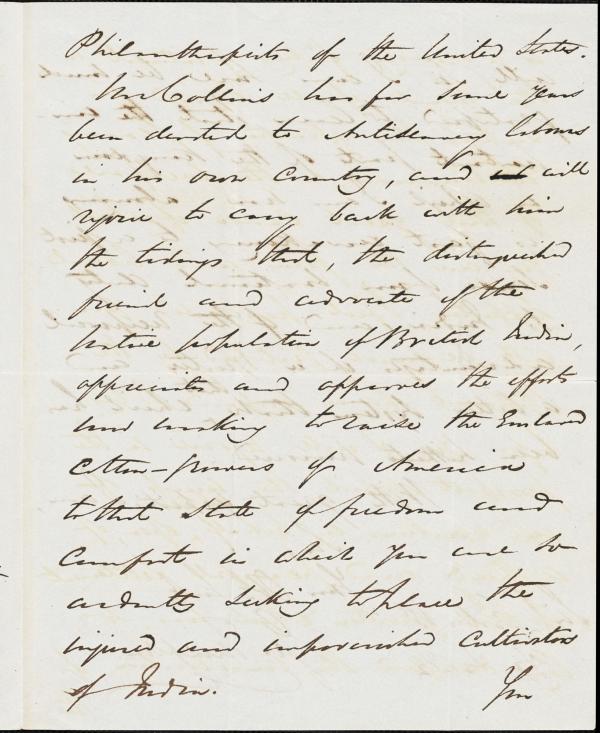 Philanthropists of the United States.
Mr Collins has for some years
been devoted to Antislavery labours
in his own Country, and will
rejoice to carry back with him
the tidings that, the distinguished
friend and advocate of the
native population of British India,
appreciates and approves the efforts
now making to raise the Enslaved
Cotton-growers of America
to that State of freedom and
Comfort in which you are so
ardently seeking to place the
injured and impoverished cultivators
of India.
You